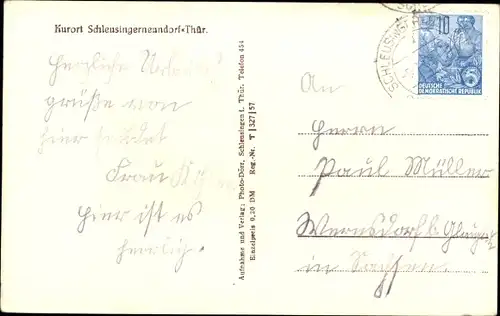 Kurort Schleusingerneundorf-Thür.
Herzliche Urlaubs
grüße von
hier sendet
Frau
Hier ist es
herrlich.
Aufnahme und Verlag: Photo-Dörr, Schleusingen i. Thür. Telefon 454
Einzelpreis 0,20 DM Reg.-Nr. T 327 57
SCHLEUSING
10
DEUTSCHE
DEMOKRATISCHE REPUBLIK
5
An
Herrn
Paul Müller
Wernsdorf b. Glauch
in Sachsen